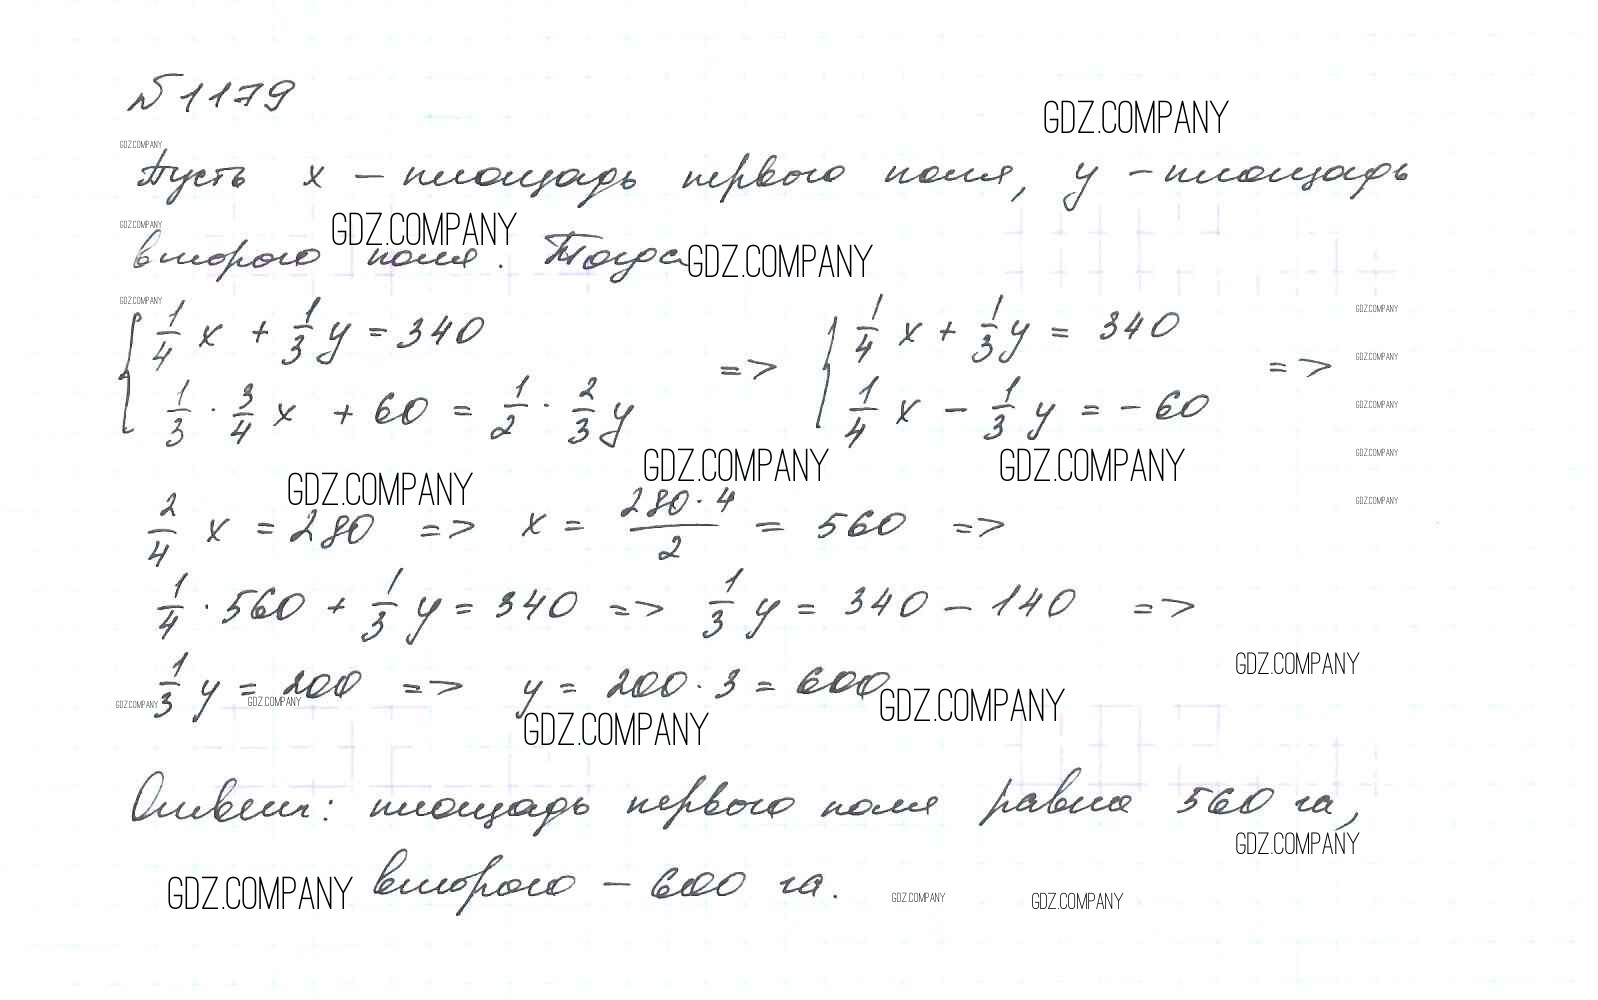 №1179
GDZ.COMPANY
GDZ.COMPANY
Пусть x – площадь первого поля, y – площадь
GDZ.COMPANY
GDZ.COMPANY
второго поля. Тогда
GDZ.COMPANY
GDZ.COMPANY
{ 1/4 x + 1/3 y = 340 => { 1/4 x + 1/3 y = 340 =>
GDZ.COMPANY
GDZ.COMPANY
1/3 · 3/4 x + 60 = 1/2 · 2/3 y 1/4 x - 1/3 y = -60
GDZ.COMPANY
GDZ.COMPANY
GDZ.COMPANY
GDZ.COMPANY
GDZ.COMPANY
GDZ.COMPANY
2/4 x = 280 => x = 280·4/2 = 560 =>
1/4 · 560 + 1/3 y = 340 => 1/3 y = 340 - 140 =>
GDZ.COMPANY
1/3 y = 200 => y = 200·3 = 600
GDZ.COMPANY
GDZ.COMPANY
GDZ.COMPANY
GDZ.COMPANY
Ответ: площадь первого поля равна 560 га,
GDZ.COMPANY
GDZ.COMPANY
второго – 600 га.
GDZ.COMPANY
GDZ.COMPANY